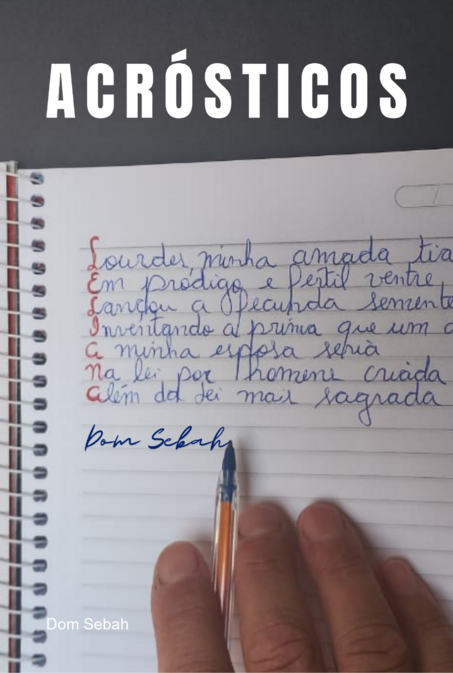 ACRÓSTICOS
Lourdes, minha amada tia
Em pródigo e fértil ventre,
Lançou a fecunda semente
Inventando a prima que um
a minha esposa seria
Na lei por homens criada
além da lei mais sagrada
Dom Sebah
Dom Sebah